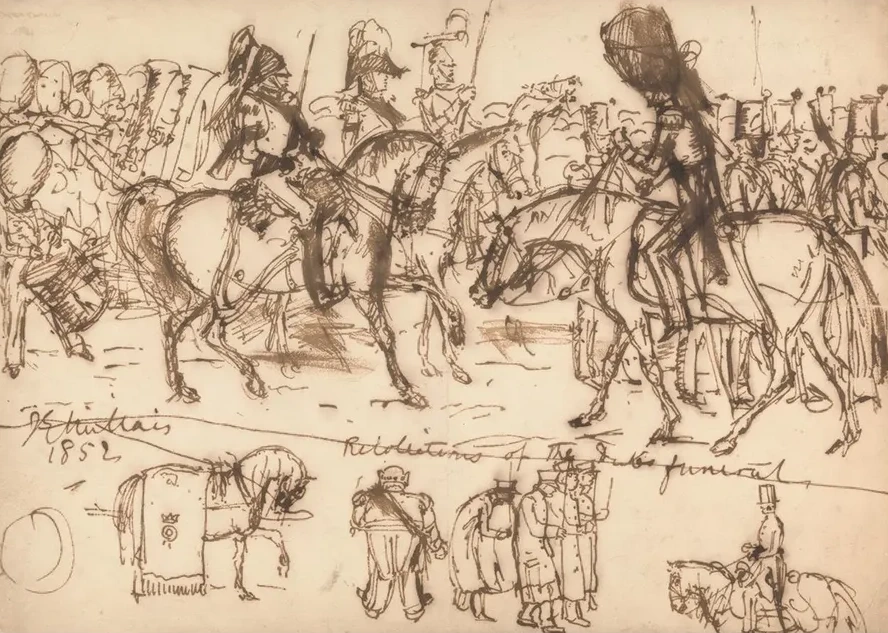 JEMillais
1852
Recollections of The Duke's funeral